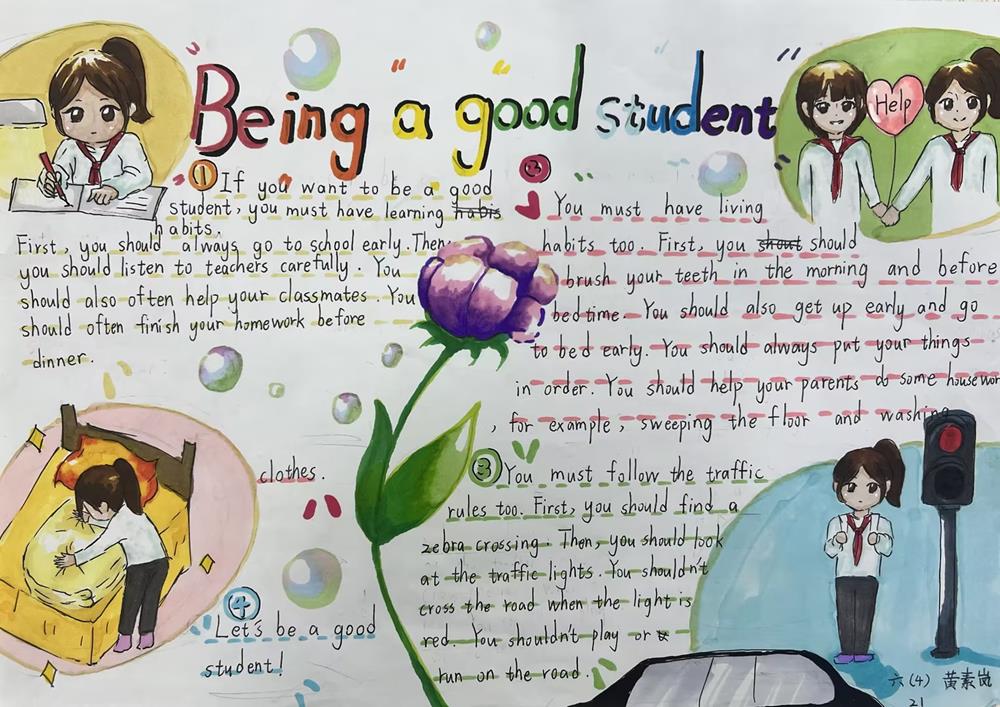 Being a good student
Help
① If you want to be a good
student, you must have learning habis
habits.
First, you should always go to school early. Then
you should listen to teachers carefully. You
should also often help your classmates. You
should often finish your homework before
dinner.
②
You must have living
habits too. First, you shout should
brush your teeth in the morning and before
bedtime. You should also get up early and go
to bed early. You should always put your things
in order. You should help your parents do some housewor
, for example, sweeping the floor and washing
clothes.
③ You must follow the traffic
rules too. First, you should find a
zebra crossing. Then, you should look
at the traffic lights. You shouldn't
cross the road when the light is
red. You shouldn't play or
run on the road.
④
Let's be a good
student!
六(4) 黄素岚
21